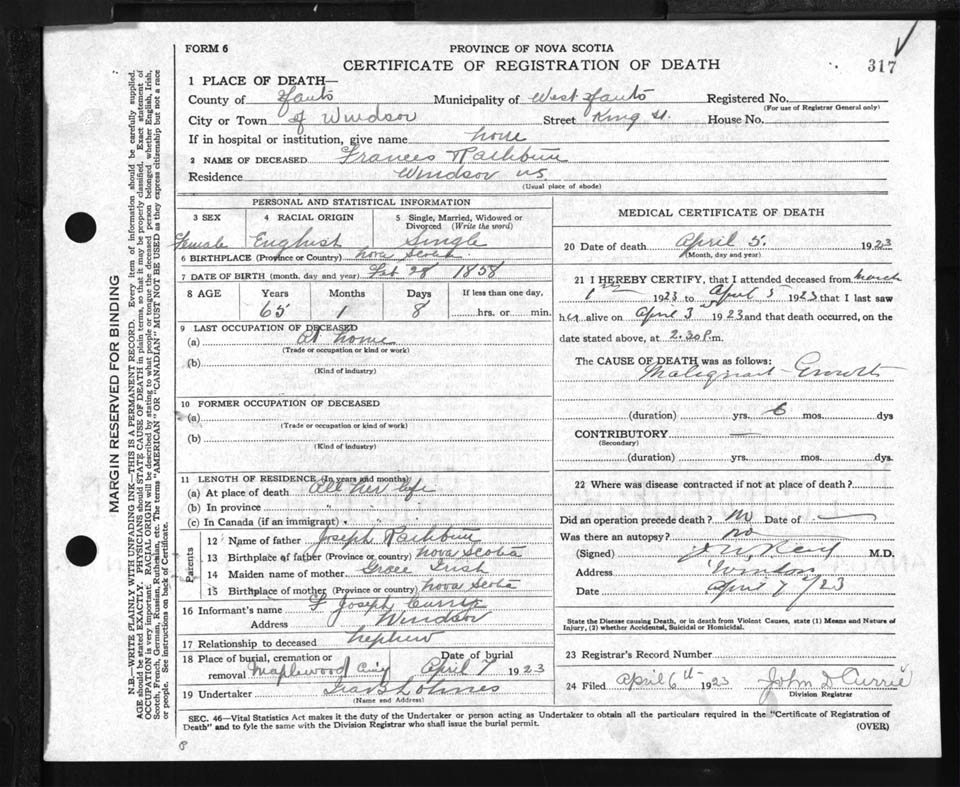 FORM 6
PROVINCE OF NOVA SCOTIA
CERTIFICATE OF REGISTRATION OF DEATH
317
1 PLACE OF DEATH—
County of Hants Municipality of West Hants Registered No.
(For use of Registrar General only)
City or Town of Windsor Street King St. House No.
If in hospital or institution, give name home
2 NAME OF DECEASED Frances Rathburn
Residence Windsor NS
(Usual place of abode)
PERSONAL AND STATISTICAL INFORMATION
3 SEX 4 RACIAL ORIGIN 5 Single, Married, Widowed or
Divorced (Write the word)
Female English Single
6 BIRTHPLACE (Province or Country) Nova Scotia
7 DATE OF BIRTH (month, day and year) Feb 28 1858
8 AGE Years Months Days If less than one day,
65 1 8 hrs. or min.
9 LAST OCCUPATION OF DECEASED
(a) At home
(Trade or occupation or kind or work)
(b)
(Kind of industry)
10 FORMER OCCUPATION OF DECEASED
(a)
(Trade or occupation or kind of work)
(b)
(Kind of industry)
11 LENGTH OF RESIDENCE (In years and months)
(a) At place of death All her life
(b) In province " "
(c) In Canada (if an immigrant) " "
Parents
12 Name of father Joseph Rathburn
13 Birthplace of father (Province or country) Nova Scotia
14 Maiden name of mother Grace Irish
15 Birthplace of mother (Province or country) Nova Scotia
16 Informant's name F Joseph Currie
Address Windsor
17 Relationship to deceased nephew
18 Place of burial, cremation or Date of burial
removal Maplewood April 7 1923
19 Undertaker
(Name and Address)
MEDICAL CERTIFICATE OF DEATH
20 Date of death April 5. 1923
(Month, day and year)
21 I HEREBY CERTIFY, that I attended deceased from March
1st 1923 to April 5 1923 that I last saw
her alive on April 3 1923 and that death occurred, on the
date stated above, at 2.30 P.m.
The CAUSE OF DEATH was as follows:
Malignant Growth
(duration) yrs. 6 mos. dys
CONTRIBUTORY —
(Secondary)
(duration) yrs. mos. dys.
22 Where was disease contracted if not at place of death?
Did an operation precede death? no Date of —
Was there an autopsy? no
(Signed) M.D.
Address Windsor
Date April 7 1923
State the Disease causing Death, or in death from Violent Causes, state (1) Means and Nature of
Injury, (2) whether Accidental, Suicidal or Homicidal.
23 Registrar's Record Number
24 Filed April 6th 1923 John D Currie
Division Registrar
SEC. 46—Vital Statistics Act makes it the duty of the Undertaker or person acting as Undertaker to obtain all the particulars required in the "Certificate of Registration of
Death" and to fyle the same with the Division Registrar who shall issue the burial permit.
(OVER)
MARGIN RESERVED FOR BINDING
N.B.—WRITE PLAINLY, WITH UNFADING INK—THIS IS A PERMANENT RECORD. Every item of information should be carefully supplied.
AGE should be stated EXACTLY. PHYSICIANS should STATE CAUSE OF DEATH in plain terms, so that it may be properly classified. Exact statement of
OCCUPATION is very important. RACIAL ORIGIN will be described by stating to what people or tongue the deceased person belonged whether English, Irish,
Scotch, French, German, Russian, Ruthenian, etc. The terms "AMERICAN" OR "CANADIAN" MUST NOT BE USED as they express citizenship but not a race
or people. See instructions on back of Certificate.